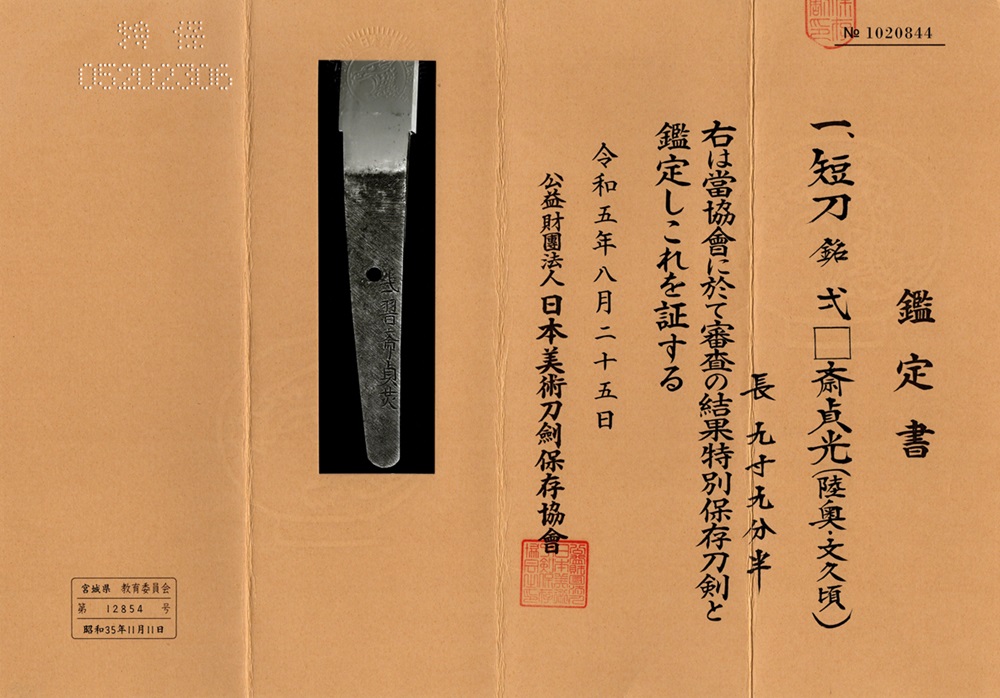 № 1020844
鑑定書
一、短刀 銘 弌□斎貞光(陸奥・文久頃)
長 九寸九分半
右は當協會に於て審査の結果特別保存刀剣と
鑑定しこれを証する
令和五年八月二十五日
公益財團法人 日本美術刀劍保存協會
特保
05202306
斎貞
宮城県 教育委員会
第 12854 号
昭和35年11月11日